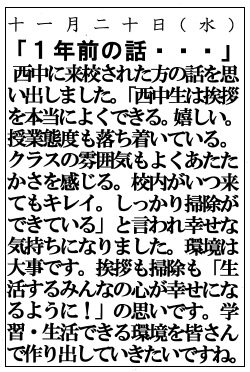 十一月二十日(水)
「１年前の話・・・」
西中に来校された方の話を思
い出しました。「西中生は挨拶
を本当によくできる。嬉しい。
授業態度も落ち着いている。
クラスの雰囲気もよくあたた
かさを感じる。校内がいつ来
てもキレイ。しっかり掃除が
できている」と言われ幸せな
気持ちになりました。環境は
大事です。挨拶も掃除も「生
活するみんなの心が幸せにな
るように！」の思いです。学
習・生活できる環境を皆さん
で作り出していきたいですね。